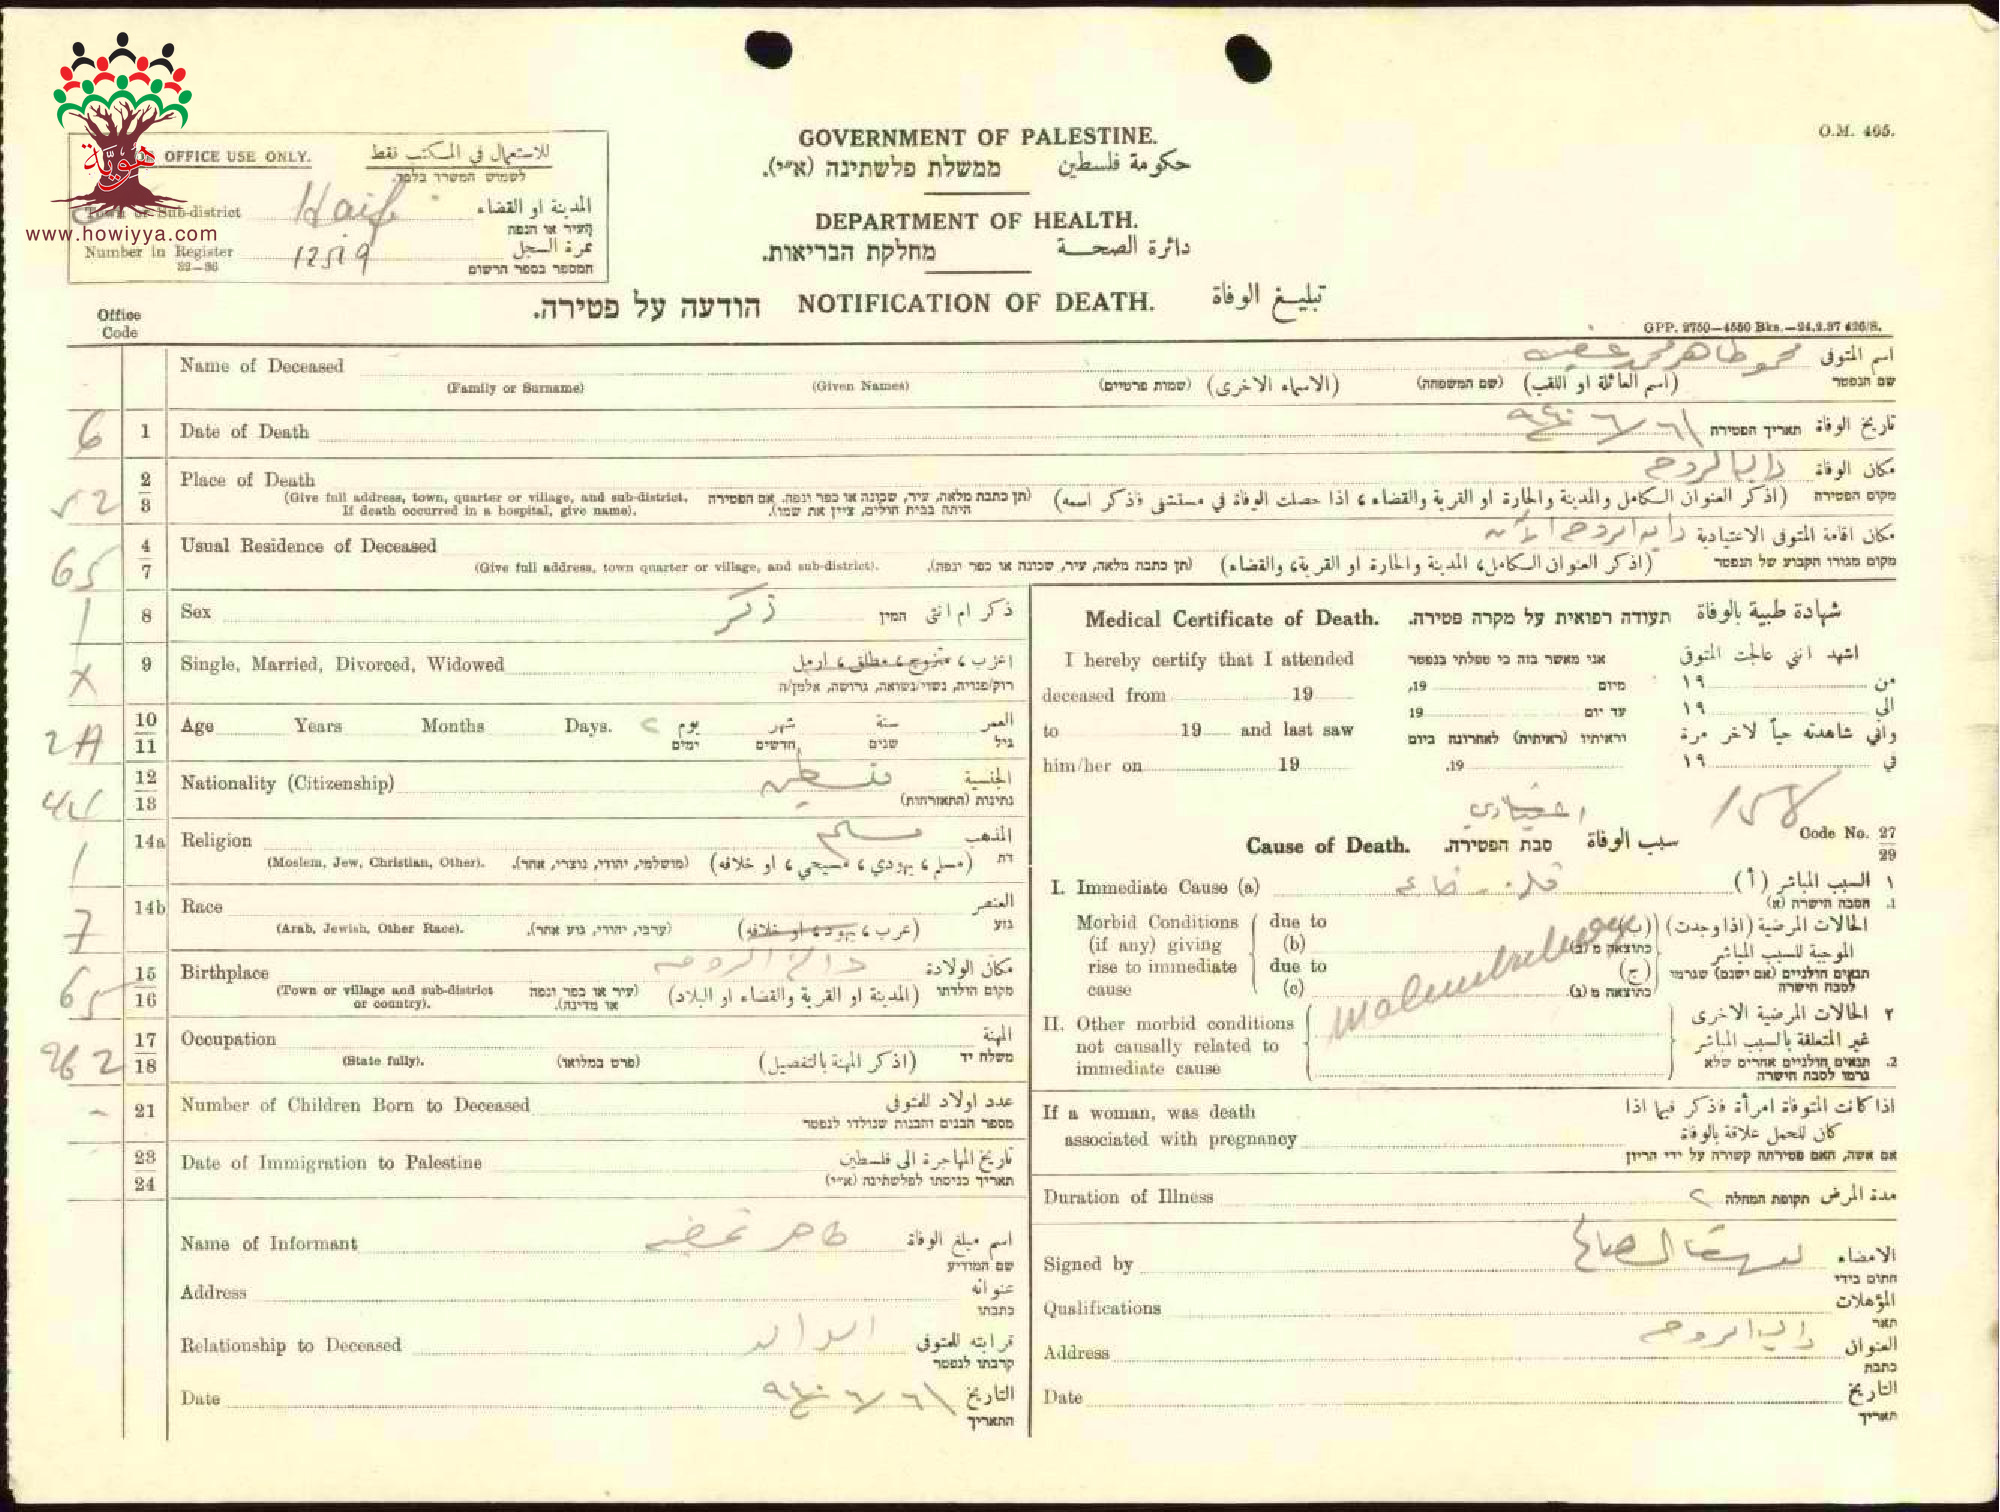 هويّة
www.howiyya.com
O.M. 465.
GOVERNMENT OF PALESTINE.
ממשלת פלשתינה (א״י). حكومة فلسطين
DEPARTMENT OF HEALTH.
מחלקת הבריאות. دائرة الصحة
FOR OFFICE USE ONLY. للاستعمال في المكتب نقط
לשמוש המשרד בלבד.
Town or Sub-district Haifa المدينة او القضاء
העיר או הנפה
Number in Register 12519 نمرة السجل
המספר בספר הרשום
הודעה על פטירה. NOTIFICATION OF DEATH. تبليغ الوفاة
Office Code
GPP. 2750—4550 Bks.—24.2.37 426/S.
Name of Deceased محمود طاهر محمد اسم المتوفى
(Family or Surname) (Given Names) (שמות פרטיים) (الاسماء الاخرى) (שם המשפחה) (اسم العائلة او اللقب) שם הנפטר
6 1 Date of Death תאריך הפטירה تاريخ الوفاة
52 2/3 Place of Death دالية الروحه مكان الوفاة
(Give full address, town, quarter or village, and sub-district. תן כתבת מלאה, עיר, שכונה או כפר ונפה. אם הפטירה) (اذكر العنوان الكامل والمدينة والحارة او القرية والقضاء، اذا حصلت الوفاة في مستشفى فاذكر اسمه) מקום הפטירה
If death occurred in a hospital, give name). היתה בבית חולים, ציין את שמו).
65 4/7 Usual Residence of Deceased دالية الروحه مكان اقامة المتوفى الاعتيادية
(Give full address, town quarter or village, and sub-district). (תן כתבת מלאה, עיר, שכונה או כפר ונפה). (اذكر العنوان الكامل، المدينة والحارة او القرية، والقضاء) מקום מגורו הקבוע של הנפטר
1 8 Sex ذكر המין ذكر ام انثى
X 9 Single, Married, Divorced, Widowed اعزب، متزوج، مطلق، ارمل
רוק/פנויה, נשוי/נשואה, גרוש/ה, אלמן/ה
2A 10/11 Age Years Months Days. ٢ يوم شهر سنة العمر
ימים חדשים שנים גיל
44 12/13 Nationality (Citizenship) فلسطين الجنسية
נתינות (התאזרחות)
1 14a Religion مسلم المذهب
(Moslem, Jew, Christian, Other). (מושלמי, יהודי, נוצרי, אחר). (مسلم، يهودي، مسيحي، او خلافه) דת
7 14b Race العنصر
(Arab, Jewish, Other Race). (ערבי, יהודי, גזע אחר). (عرب، يهود، او خلافه) גזע
65 15/16 Birthplace دالية الروحه مكان الولادة
(Town or village and sub-district or country). (עיר או כפר ונפה או מדינה). (المدينة او القرية والقضاء او البلاد) מקום הולדתו
962 17/18 Occupation المهنة
(State fully). (פרט במלואו) (اذكر المهنة بالتفصيل) משלח יד
- 21 Number of Children Born to Deceased عدد اولاد المتوفى
מספר הבנים והבנות שנולדו לנפטר
23/24 Date of Immigration to Palestine تاريخ المهاجرة الى فلسطين
תאריך כניסתו לפלשתינה (א״י)
Name of Informant طاهر اسم مبلغ الوفاة
שם המודיע
Address عنوانه
כתבתו
Relationship to Deceased الوالد قرابته للمتوفى
קרבתו לנפטר
Date التاريخ
התאריך
Medical Certificate of Death. תעודה רפואית על מקרה פטירה. شهادة طبية بالوفاة
I hereby certify that I attended אני מאשר בזה כי טפלתי בנפטר اشهد انني عالجت المتوفى
deceased from 19 מיום 19, من ١٩
to 19 and last saw עד יום 19 الى ١٩
וראיתיו (ראיתיה) לאחרונה ביום واني شاهدته حياً لاخر مرة
him/her on 19 19. في ١٩
158 Code No. 27/29
Cause of Death. סבת הפטירה. سبب الوفاة
I. Immediate Cause (a) السبب المباشر (أ) ١
הסבה הישרה (א) 1.
Morbid Conditions (if any) giving rise to immediate cause due to (b) due to (c)
الحالات المرضية (اذا وجدت) الموجبة للسبب المباشر (ب) (ج)
כתוצאה מ (ב) כתוצאה מ (ג).
תנאים חולניים (אם ישנם) שגרמו לסבה הישרה
II. Other morbid conditions not causally related to immediate cause
٢ الحالات المرضية الاخرى غير المتعلقة بالسبب المباشر
2. תנאים חולניים אחרים שלא גרמו לסבה הישרה
If a woman, was death associated with pregnancy
اذا كانت المتوفاة امرأة فذكر فيما اذا كان للحمل علاقة بالوفاة
אם אשה, האם פטירתה קשורה על ידי הריון
Duration of Illness ٢ תקופת המחלה مدة المرض
Signed by الامضاء
חתום בידי
Qualifications المؤهلات
תאר
Address دالية الروحه العنوان
כתבת
Date التاريخ
תאריך